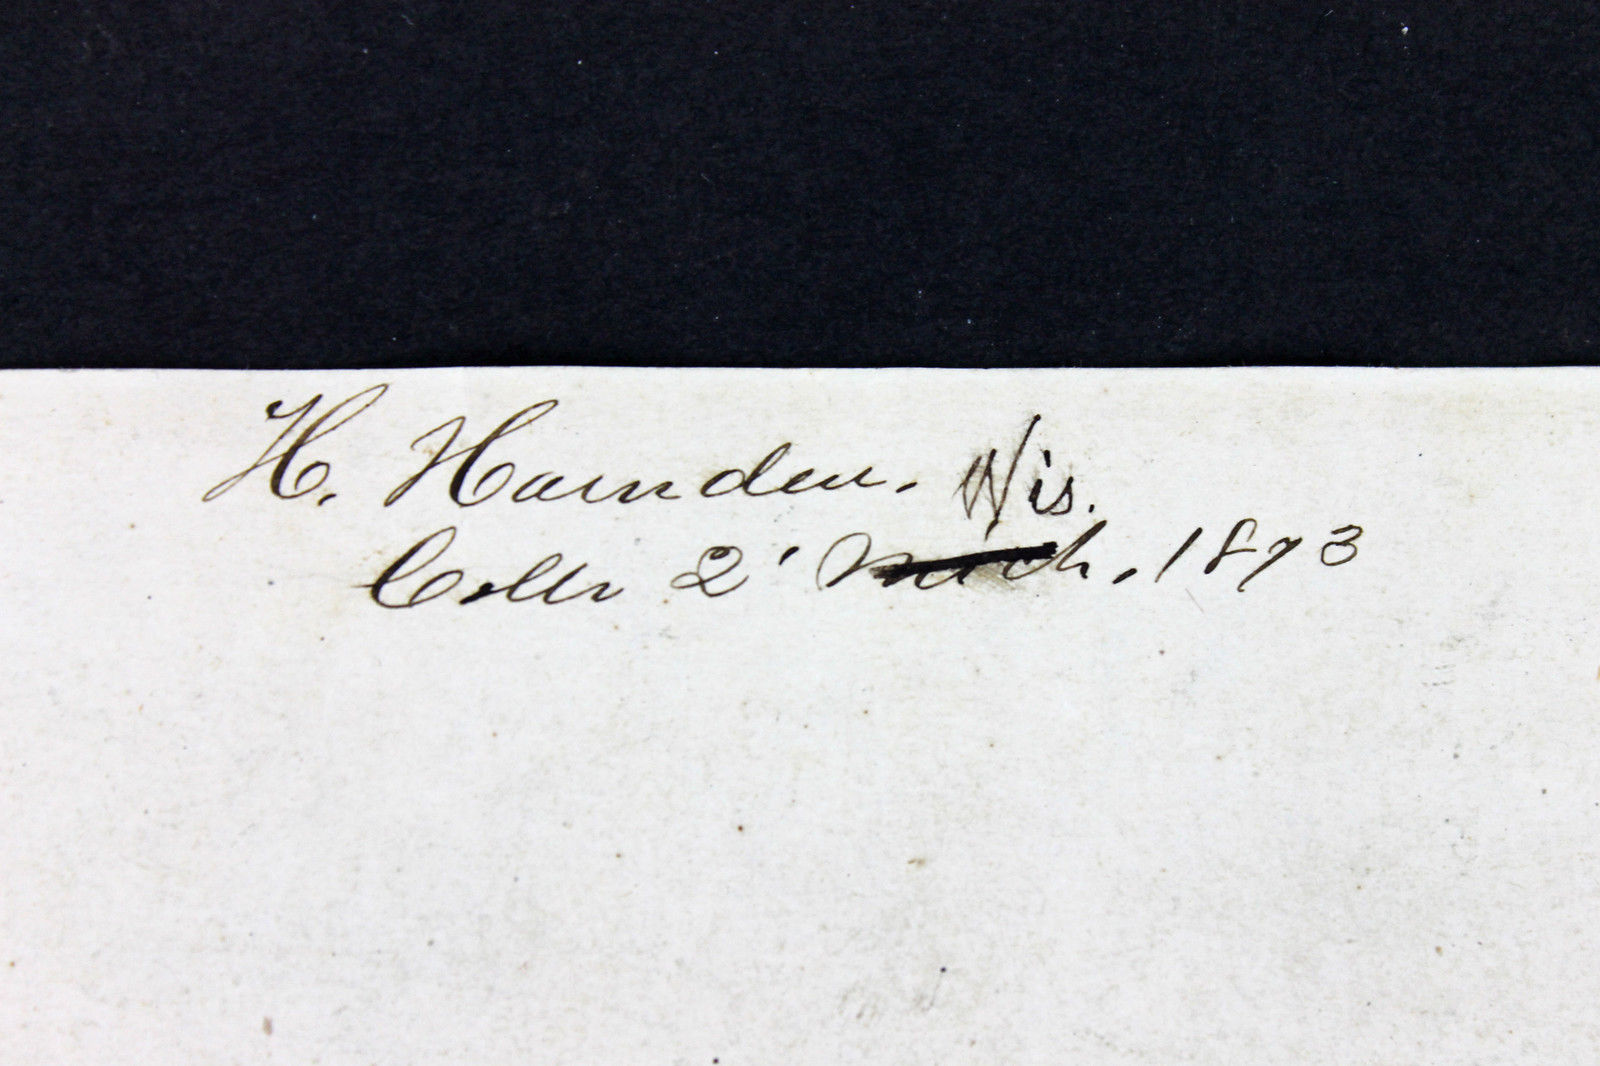 H. Harnden. Wis.
Collr 2' Mich. 1873